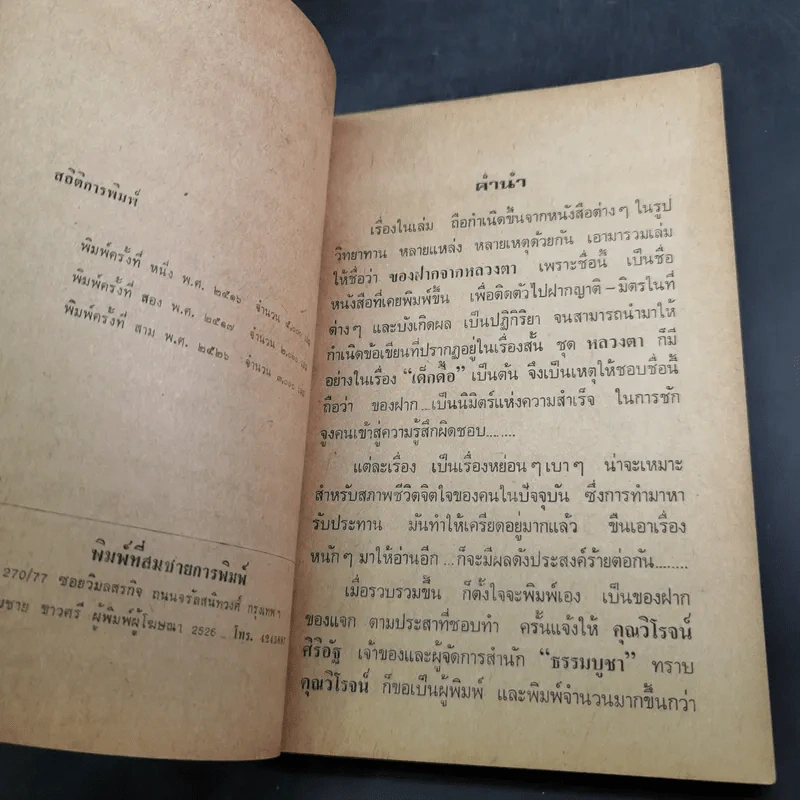 สถิติการพิมพ์
พิมพ์ครั้งที่ หนึ่ง พ.ศ. ๒๕๑๖ จำนวน ๕,๐๐๐ เล่ม
พิมพ์ครั้งที่ สอง พ.ศ. ๒๕๑๗ จำนวน ๒,๐๐๐ เล่ม
พิมพ์ครั้งที่ สาม พ.ศ. ๒๕๒๖ จำนวน ๓,๐๐๐ เล่ม
พิมพ์ที่สมชายการพิมพ์
270/77 ซอยวิมลสรกิจ ถนนจรัลสนิทวงศ์ กรุงเทพฯ
ชาวศรี ผู้พิมพ์ผู้โฆษณา 2526 โทร.
คำนำ
เรื่องในเล่ม ถือกำเนิดขึ้นจากหนังสือต่างๆ ในรูป
วิทยาทาน หลายแหล่ง หลายเหตุด้วยกัน เอามารวมเล่ม
ให้ชื่อว่า ของฝากจากหลวงตา เพราะชื่อนี้ เป็นชื่อ
หนังสือที่เคยพิมพ์ขึ้น เพื่อติดตัวไปฝากญาติ–มิตรในที่
ต่างๆ และบังเกิดผล เป็นปฏิกิริยา จนสามารถนำมาให้
กำเนิดข้อเขียนที่ปรากฏอยู่ในเรื่องสั้น ชุด หลวงตา ก็มี
อย่างในเรื่อง “เด็กดื้อ” เป็นต้น จึงเป็นเหตุให้ชอบชื่อนี้
ถือว่า ของฝาก...เป็นนิมิตร์แห่งความสำเร็จ ในการชัก
จูงคนเข้าสู่ความรู้สึกผิดชอบ........
แต่ละเรื่อง เป็นเรื่องหย่อนๆ เบาๆ น่าจะเหมาะ
สำหรับสภาพชีวิตจิตใจของคนในปัจจุบัน ซึ่งการทำมาหา
รับประทาน มันทำให้เครียดอยู่มากแล้ว ขืนเอาเรื่อง
หนักๆ มาให้อ่านอีก...ก็จะมีผลดังประสงค์ร้ายต่อกัน........
เมื่อรวบรวมขึ้น ก็ตั้งใจจะพิมพ์เอง เป็นของฝาก
ของแจก ตามประสาที่ชอบทำ ครั้นแจ้งให้ คุณวิโรจน์
ศิริอัฐ เจ้าของและผู้จัดการสำนัก “ธรรมบูชา” ทราบ
คุณวิโรจน์ ก็ขอเป็นผู้พิมพ์ และพิมพ์จำนวนมากขึ้นกว่า